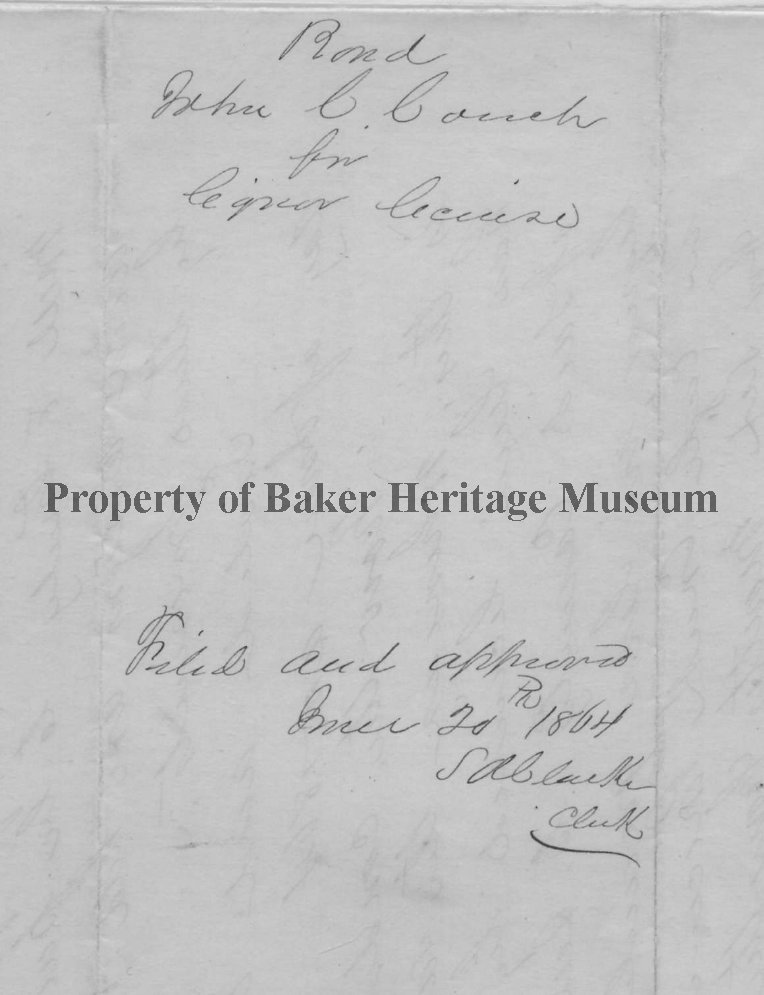 Bond
John C. Couch
for
liquor license
Property of Baker Heritage Museum
Filed and approved
June 20th 1864
S A Clarke
Clerk